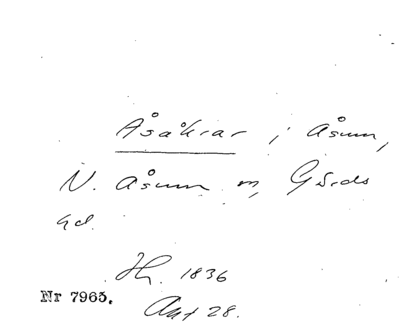 Åsåkrar i Åsum,
N. Åsum sn, Gärds
hd.
1836
Nr 7965.
Akt 28.